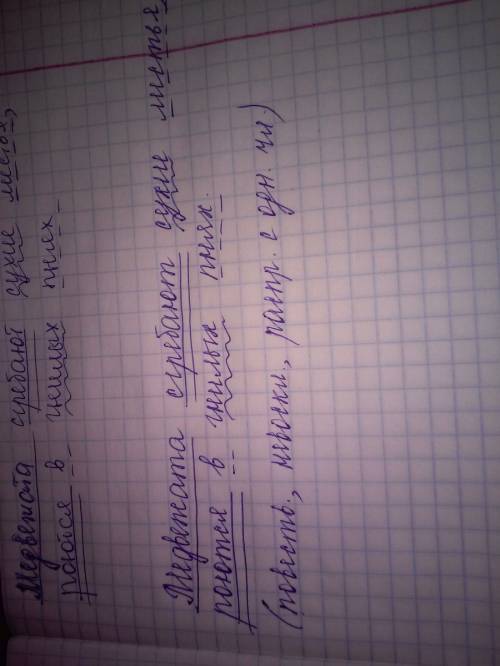 Медвежата сгребают сухие листья,
роются в гнилых пнях.
Медвежата сгребают сухие листья
роются в гнилых пнях.
(повеств., невоскл., распр. с одн. чл.)